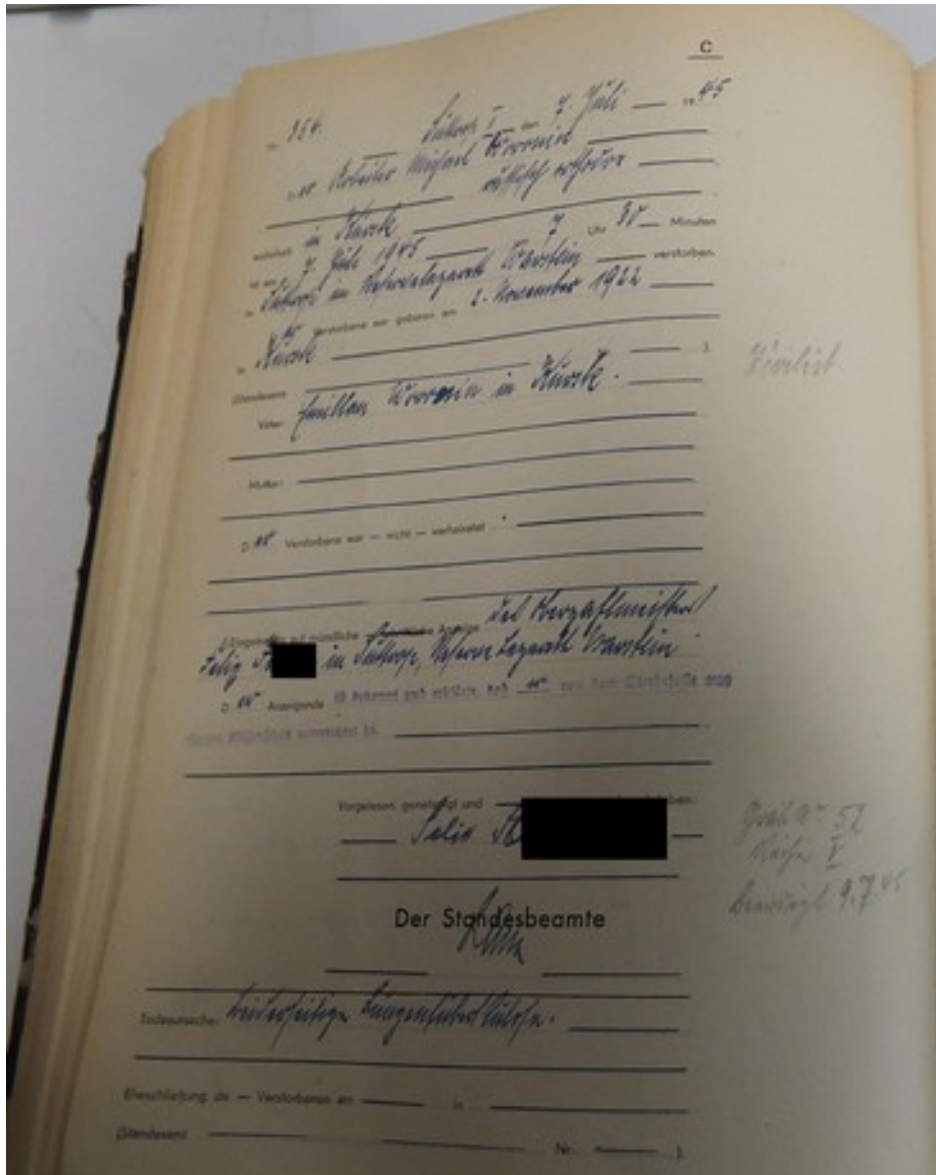 C
Nr. 354. Suttrop I, den 7. Juli 1945
Der Arbeiter Michael Woronin
russisch orthodox
wohnhaft in Kursk
ist am 7. Juli 1945 7 Uhr 30 Minuten
in Suttrop im Reservelazarett Warstein verstorben.
Der Verstorbene war geboren am 2. November 1922
in Kursk
(Standesamt ).
Zivilist
Vater: Emillan Woronin in Kursk.
Mutter:
Der Verstorbene war — nicht — verheiratet.
Eingetragen auf mündliche Anzeige des Oberzahlmeisters
Felix in Suttrop, Reserve Lazarett Warstein
Der Anzeigende ist bekannt und erklärte, daß er von dem Sterbefalle aus
eigener Wissenschaft unterrichtet ist.
Vorgelesen, genehmigt und
Felix
Grab Nr. 52
Reihe V
beerdigt 9.7.45
Der Standesbeamte
Todesursache: beiderseitige Lungentuberkulose.
Eheschließung de — Verstorbenen am in
(Standesamt Nr. ).